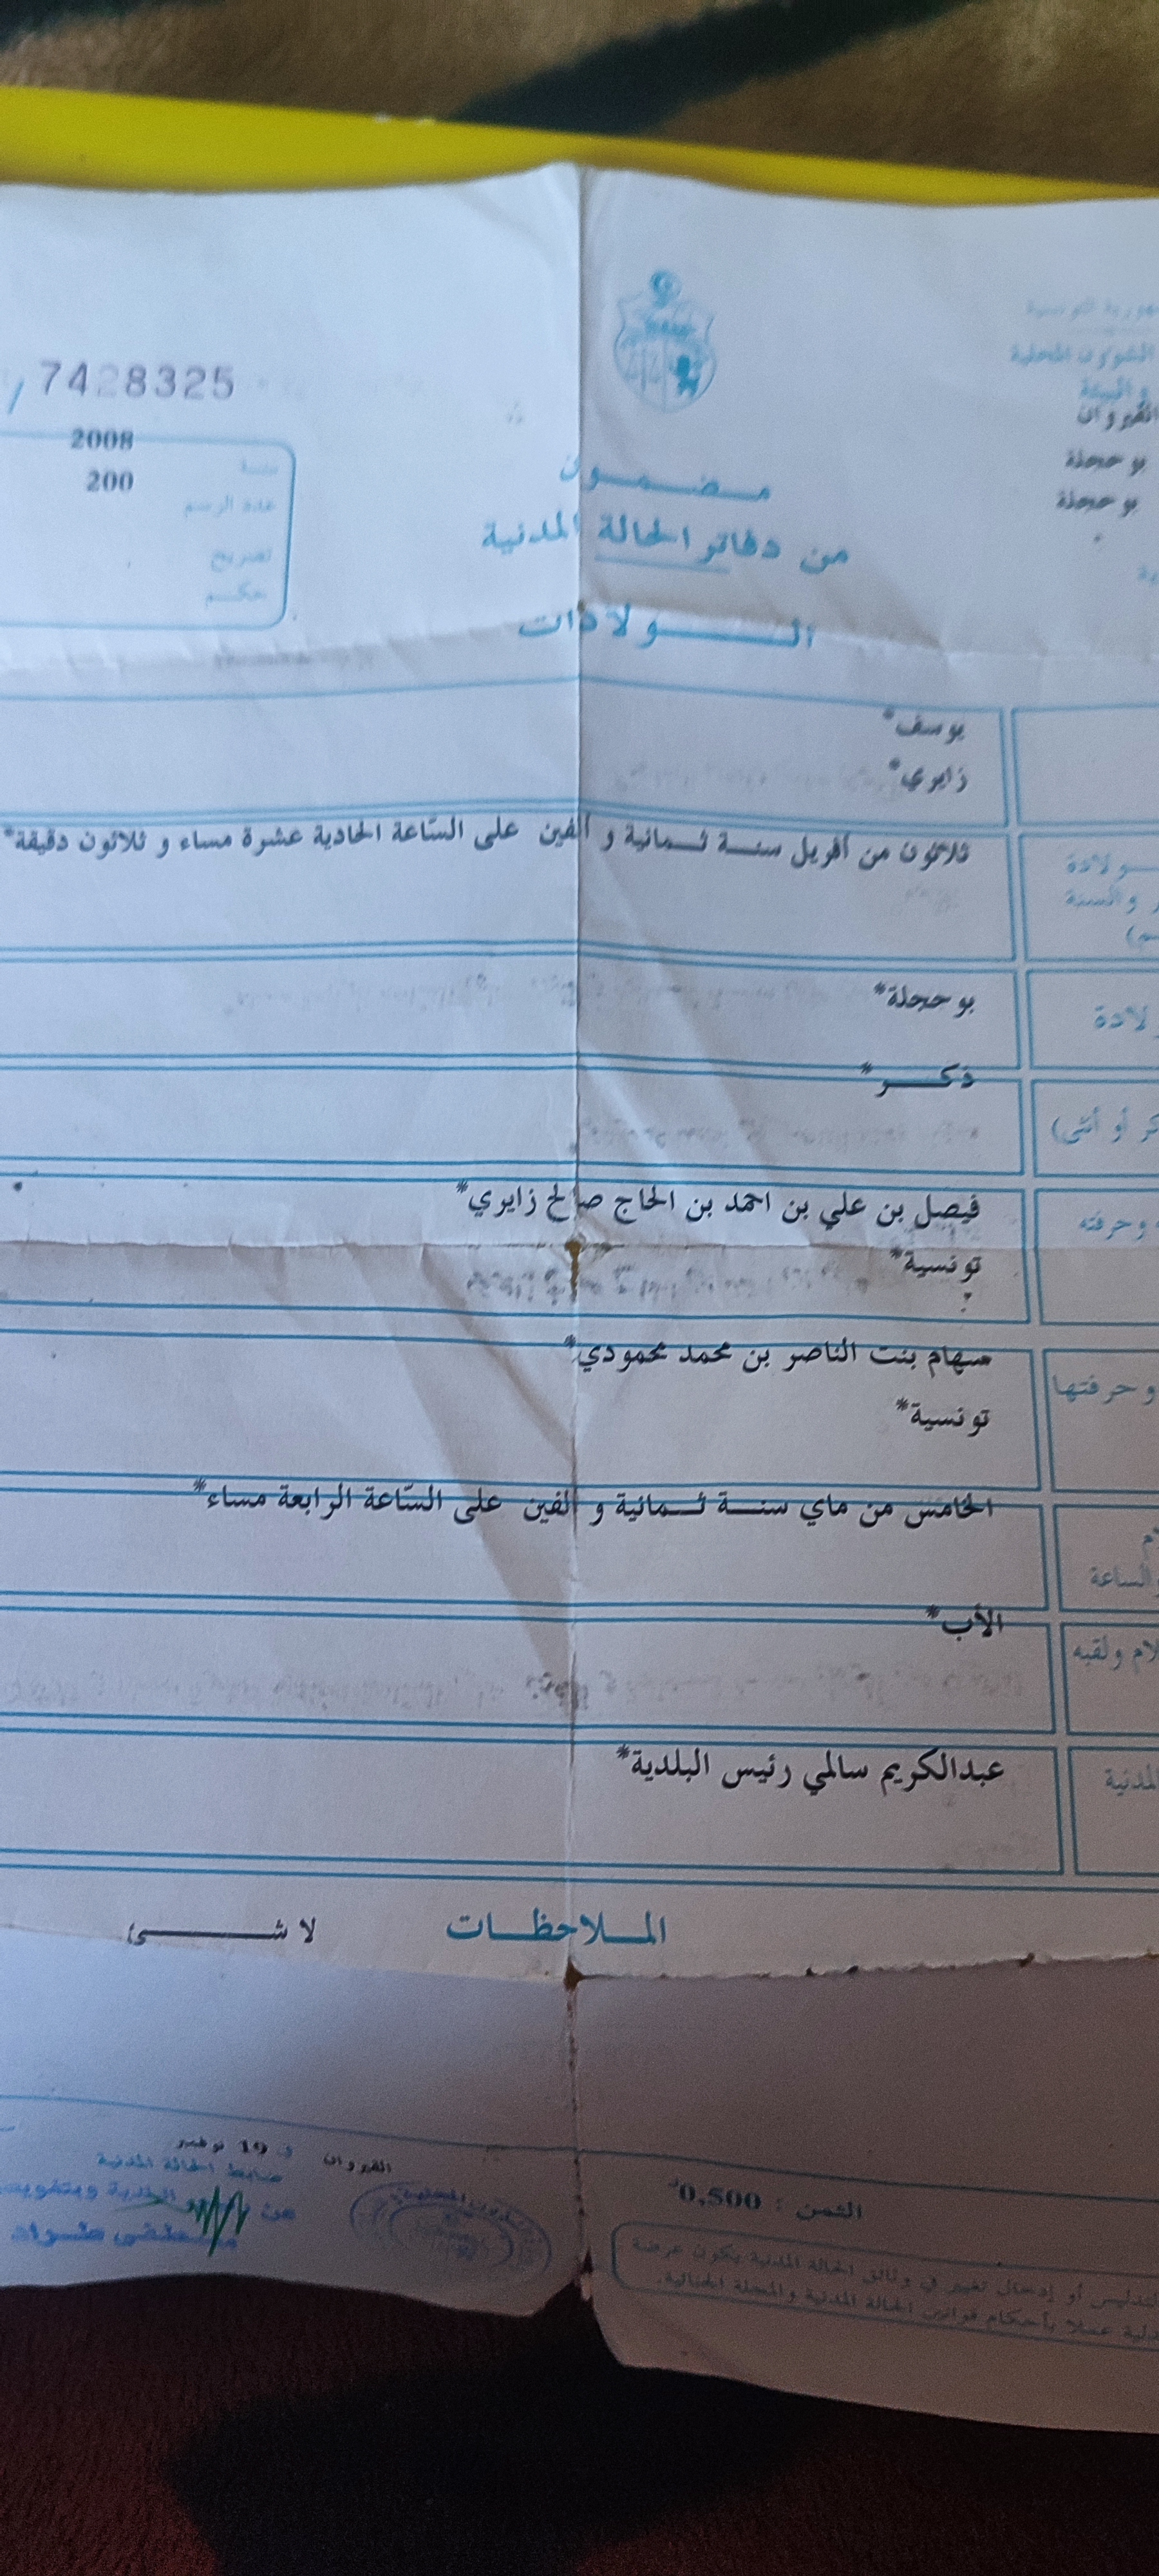 الشؤون المحلية
والبيئة
القيروان
بوحجلة
بوحجلة
7428325
2008
سنة
200
عدد الرسم
تصريح
حكم
مضمون
من دفاتر الحالة المدنية
الولادات
يوسف*
زايري*
ثلاثون من أفريل سنة ثمانية و ألفين على السّاعة الحادية عشرة مساء و ثلاثون دقيقة*
والسنة
بوحجلة*
ذكر*
أو أنثى)
فيصل بن علي بن احمد بن الحاج صالح زايري*
وحرفته
تونسية*
سهام بنت الناصر بن محمد محمودي*
وحرفتها
تونسية*
الخامس من ماي سنة ثمانية و ألفين على السّاعة الرابعة مساء*
والساعة
الأب*
ولقبه
عبدالكريم سالمي رئيس البلدية*
المدنية
الملاحظات
لا شئ
القيروان في 19 نوفمبر
ضابط الحالة المدنية
الثمن : 0,500د
أو إدخال تغيير في وثائق الحالة المدنية يكون عرضة
عملا بأحكام قوانين الحالة المدنية والمجلة الجنائية.